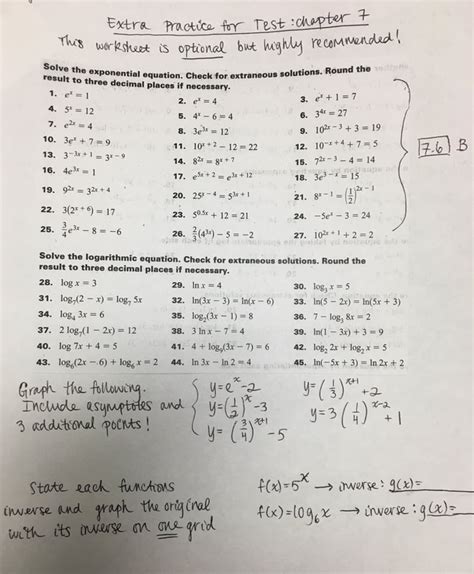 Extra Practice for Test: chapter 7
This worksheet is optional but highly recommended!
Solve the exponential equation. Check for extraneous solutions. Round the
result to three decimal places if necessary.
1. e^x = 1 2. e^x = 4 3. e^x + 1 = 7
4. 5^x = 12 5. 4^x − 6 = 4 6. 3^{4x} = 27
7. e^{2x} = 4 8. 3e^{3x} = 12 9. 10^{2x − 3} + 3 = 19
10. 3e^x + 7 = 9 11. 10^{x + 2} − 12 = 22 12. 10^{−x + 4} + 7 = 5
13. 3^{−3x + 1} = 3^{x − 9} 14. 8^{2x} = 8^{x + 7} 15. 7^{2x − 3} − 4 = 14
16. 4e^{3x} = 1 17. e^{5x + 2} = e^{3x + 12} 18. 3e^{3 − x} = 15
19. 9^{2x} = 3^{2x + 4} 20. 25^{x − 4} = 5^{3x + 1} 21. 8^{x − 1} = (1/2)^{2x − 1}
22. 3(2^{x + 6}) = 17 23. 5^{0.5x} + 12 = 21 24. −5e^{−x} − 3 = 24
25. 3/4 e^{3x} − 8 = −6 26. 2/3 (4^{3x}) − 5 = −2 27. 10^{2x + 1} + 2 = 2
7.6 B
Solve the logarithmic equation. Check for extraneous solutions. Round the
result to three decimal places if necessary.
28. log x = 3 29. ln x = 4 30. log_3 x = 5
31. log_7(2 − x) = log_7 5x 32. ln(3x − 3) = ln(x − 6) 33. ln(5 − 2x) = ln(5x + 3)
34. log_4 3x = 6 35. log_2(3x − 1) = 8 36. 7 − log_3 8x = 2
37. 2 log_7(1 − 2x) = 12 38. 3 ln x − 7 = 4 39. ln(1 − 3x) + 9 = 9
40. log 7x + 4 = 5 41. 4 + log_9(3x − 7) = 6 42. log_2 2x + log_2 x = 5
43. log_6(2x − 6) + log_6 x = 2 44. ln 3x − ln 2 = 4 45. ln(−5x + 3) = ln 2x + 2
Graph the following. y = e^x − 2 y = (1/3)^{x+1} + 2
Include asymptotes and y = (1/2)^x − 3 y = 3(1/4)^{x−2} + 1
3 additional points! y = (3/4)^{x+1} − 5
State each functions f(x) = 5^x → inverse: g(x) =
inverse and graph the original f(x) = log_6 x → inverse: g(x) =
with its inverse on one grid